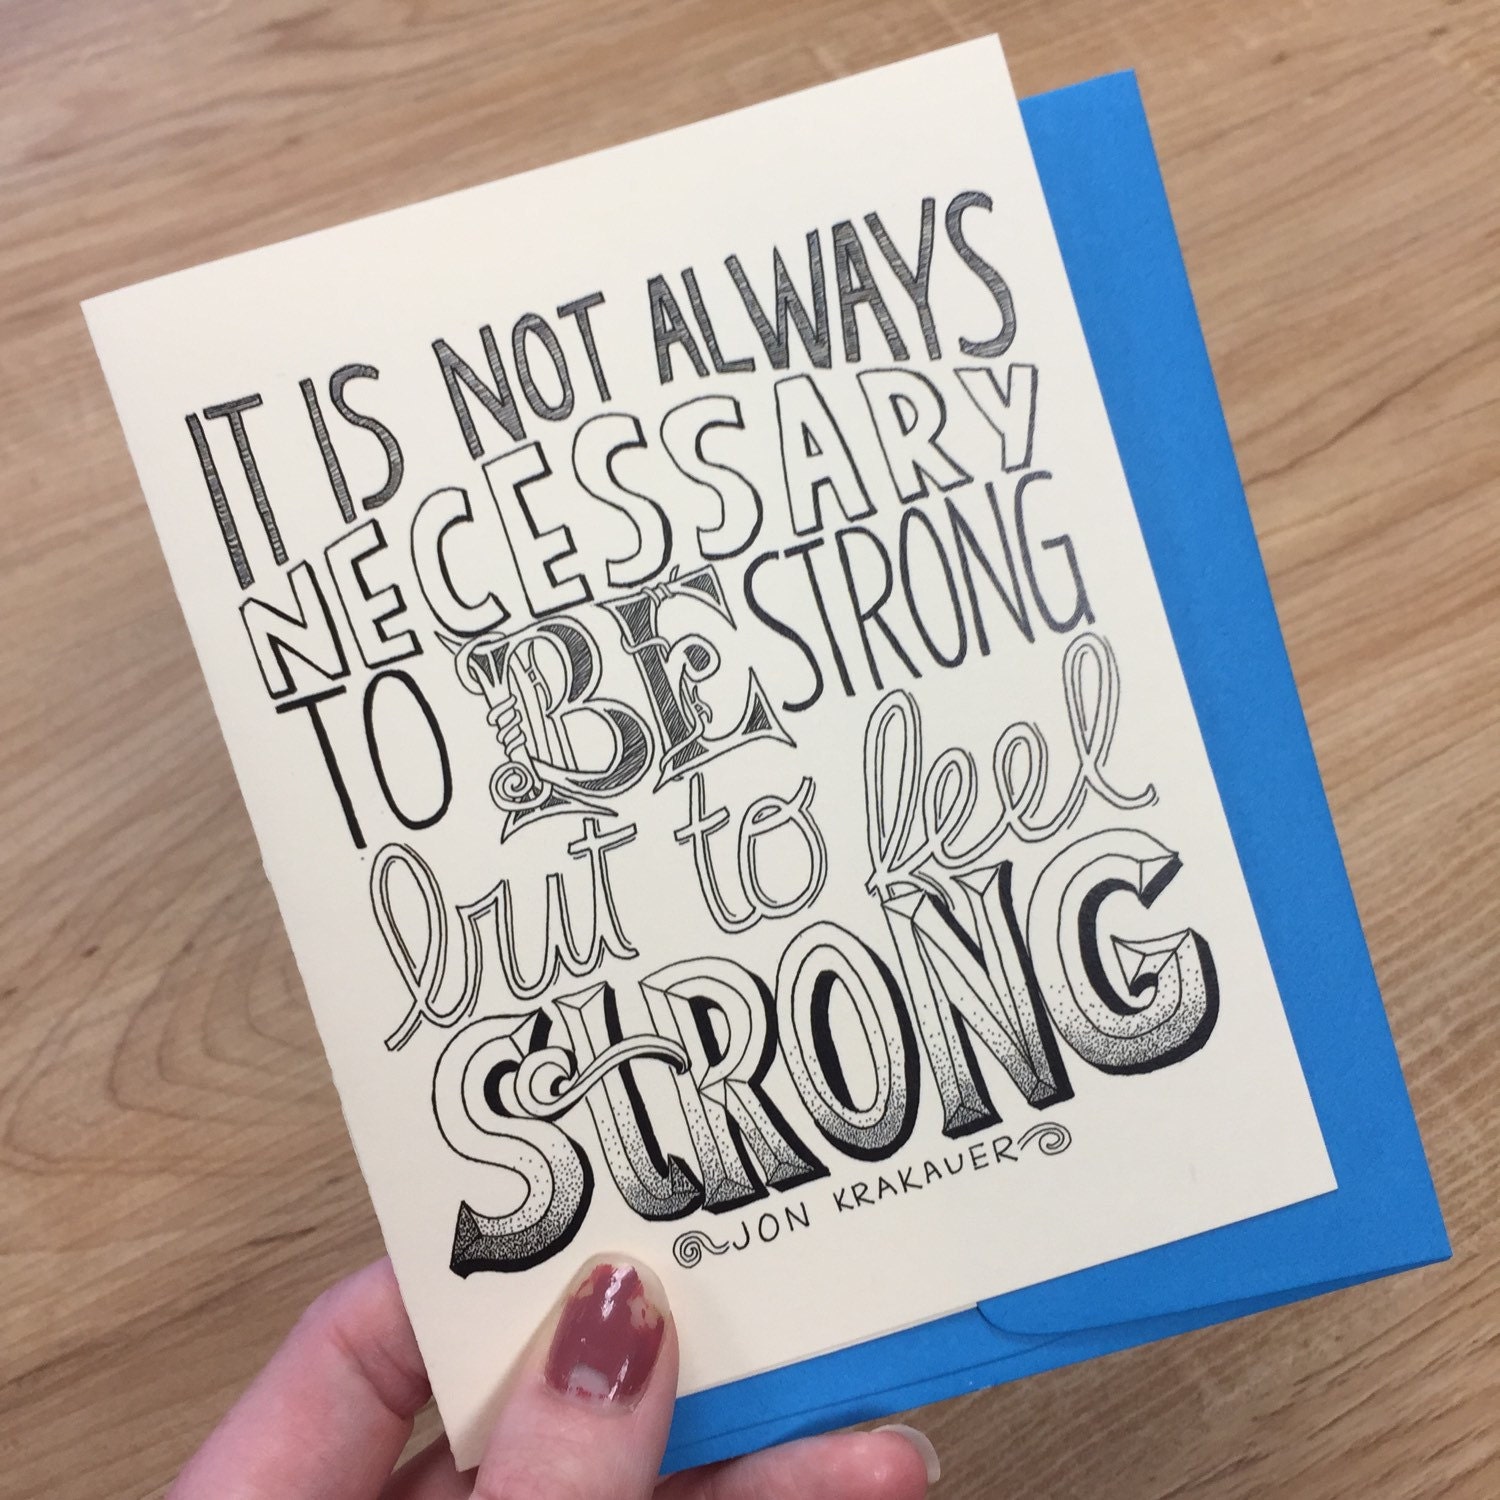 IT IS NOT ALWAYS
NECESSARY
TO BE STRONG
but to feel
STRONG
JON KRAKAUER